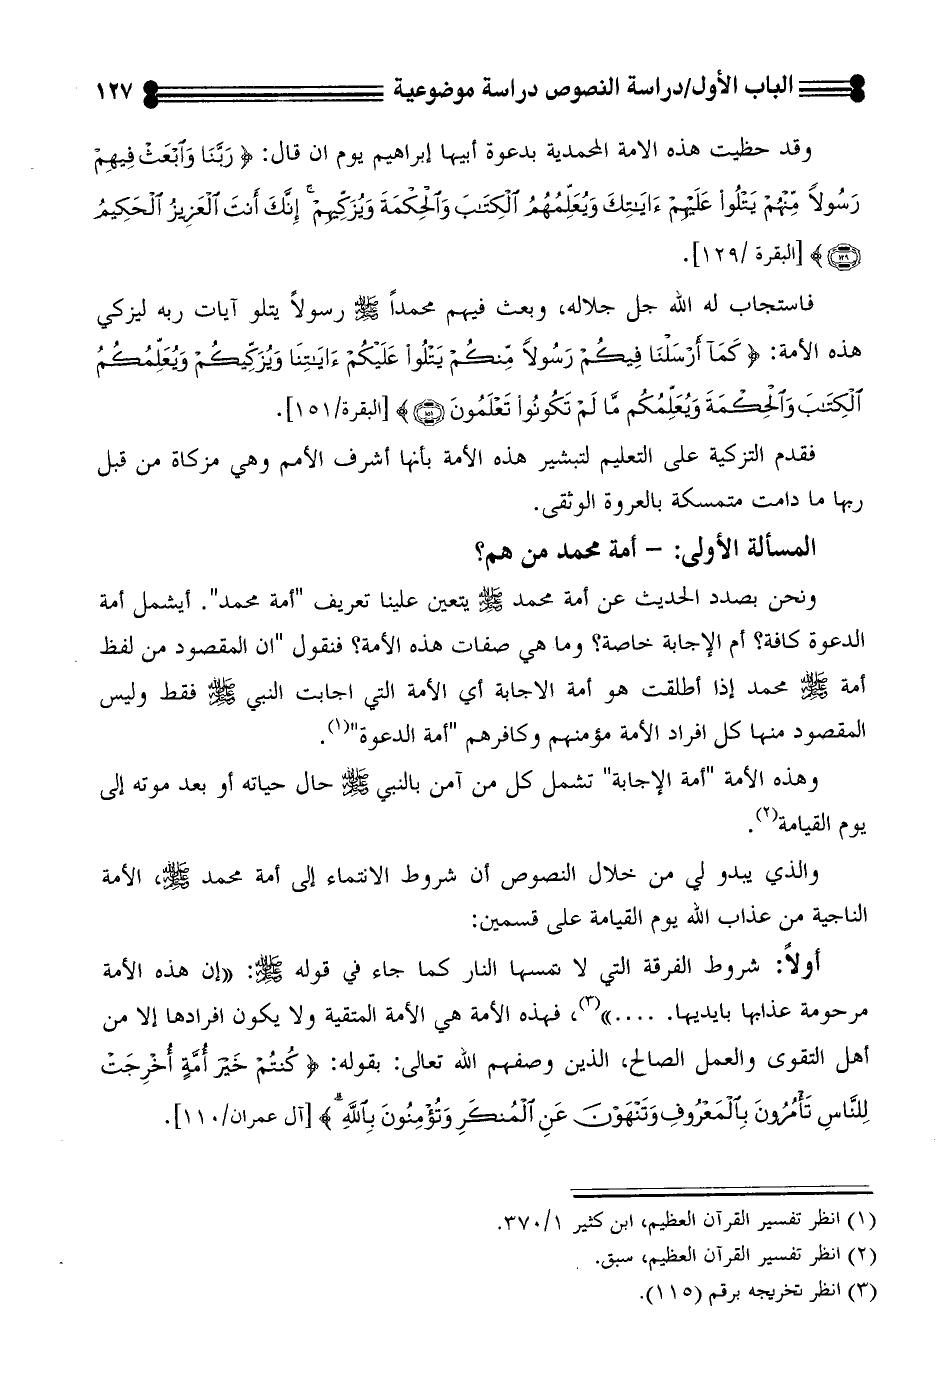 الباب الأول/دراسة النصوص دراسة موضوعية ١٢٧
وقد حظيت هذه الامة المحمدية بدعوة أبيها إبراهيم يوم ان قال: ﴿ رَبَّنَا وَٱبْعَثْ فِيهِمْ
رَسُولاً مِّنْهُمْ يَتْلُواْ عَلَيْهِمْ ءَايَـٰتِكَ وَيُعَلِّمُهُمُ ٱلْكِتَـٰبَ وَٱلْحِكْمَةَ وَيُزَكِّيهِمْ ۚ إِنَّكَ أَنتَ ٱلْعَزِيزُ ٱلْحَكِيمُ
١٢٩ ﴾ [البقرة /١٢٩].
فاستجاب له الله جل جلاله، وبعث فيهم محمداً ﷺ رسولاً يتلو آيات ربه ليزكي
هذه الأمة: ﴿ كَمَآ أَرْسَلْنَا فِيكُمْ رَسُولاً مِّنكُمْ يَتْلُواْ عَلَيْكُمْ ءَايَـٰتِنَا وَيُزَكِّيكُمْ وَيُعَلِّمُكُمُ
ٱلْكِتَـٰبَ وَٱلْحِكْمَةَ وَيُعَلِّمُكُم مَّا لَمْ تَكُونُواْ تَعْلَمُونَ ١٥١ ﴾ [البقرة/١٥١].
فقدم التزكية على التعليم لتبشير هذه الأمة بأنها أشرف الأمم وهي مزكاة من قبل
ربها ما دامت متمسكة بالعروة الوثقى.
المسألة الأولى: – أمة محمد من هم؟
ونحن بصدد الحديث عن أمة محمد ﷺ يتعين علينا تعريف "أمة محمد". أيشمل أمة
الدعوة كافة؟ أم الإجابة خاصة؟ وما هي صفات هذه الأمة؟ فنقول "ان المقصود من لفظ
أمة ﷺ محمد إذا أطلقت هو أمة الاجابة أي الأمة التي اجابت النبي ﷺ فقط وليس
المقصود منها كل افراد الأمة مؤمنهم وكافرهم "أمة الدعوة"(١).
وهذه الأمة "أمة الإجابة" تشمل كل من آمن بالنبي ﷺ حال حياته أو بعد موته إلى
يوم القيامة(٢).
والذي يبدو لي من خلال النصوص أن شروط الانتماء إلى أمة محمد ﷺ، الأمة
الناجية من عذاب الله يوم القيامة على قسمين:
أولاً: شروط الفرقة التي لا تمسها النار كما جاء في قوله ﷺ: «إن هذه الأمة
مرحومة عذابها بايديها. ....»(٣)، فهذه الأمة هي الأمة المتقية ولا يكون افرادها إلا من
أهل التقوى والعمل الصالح، الذين وصفهم الله تعالى: بقوله: ﴿ كُنتُمْ خَيْرَ أُمَّةٍ أُخْرِجَتْ
لِلنَّاسِ تَأْمُرُونَ بِٱلْمَعْرُوفِ وَتَنْهَوْنَ عَنِ ٱلْمُنكَرِ وَتُؤْمِنُونَ بِٱللَّهِ ۗ ﴾ [آل عمران/١١٠].
(١) انظر تفسير القرآن العظيم، ابن كثير ٣٧٠/١.
(٢) انظر تفسير القرآن العظيم، سبق.
(٣) انظر تخريجه برقم (١١٥).